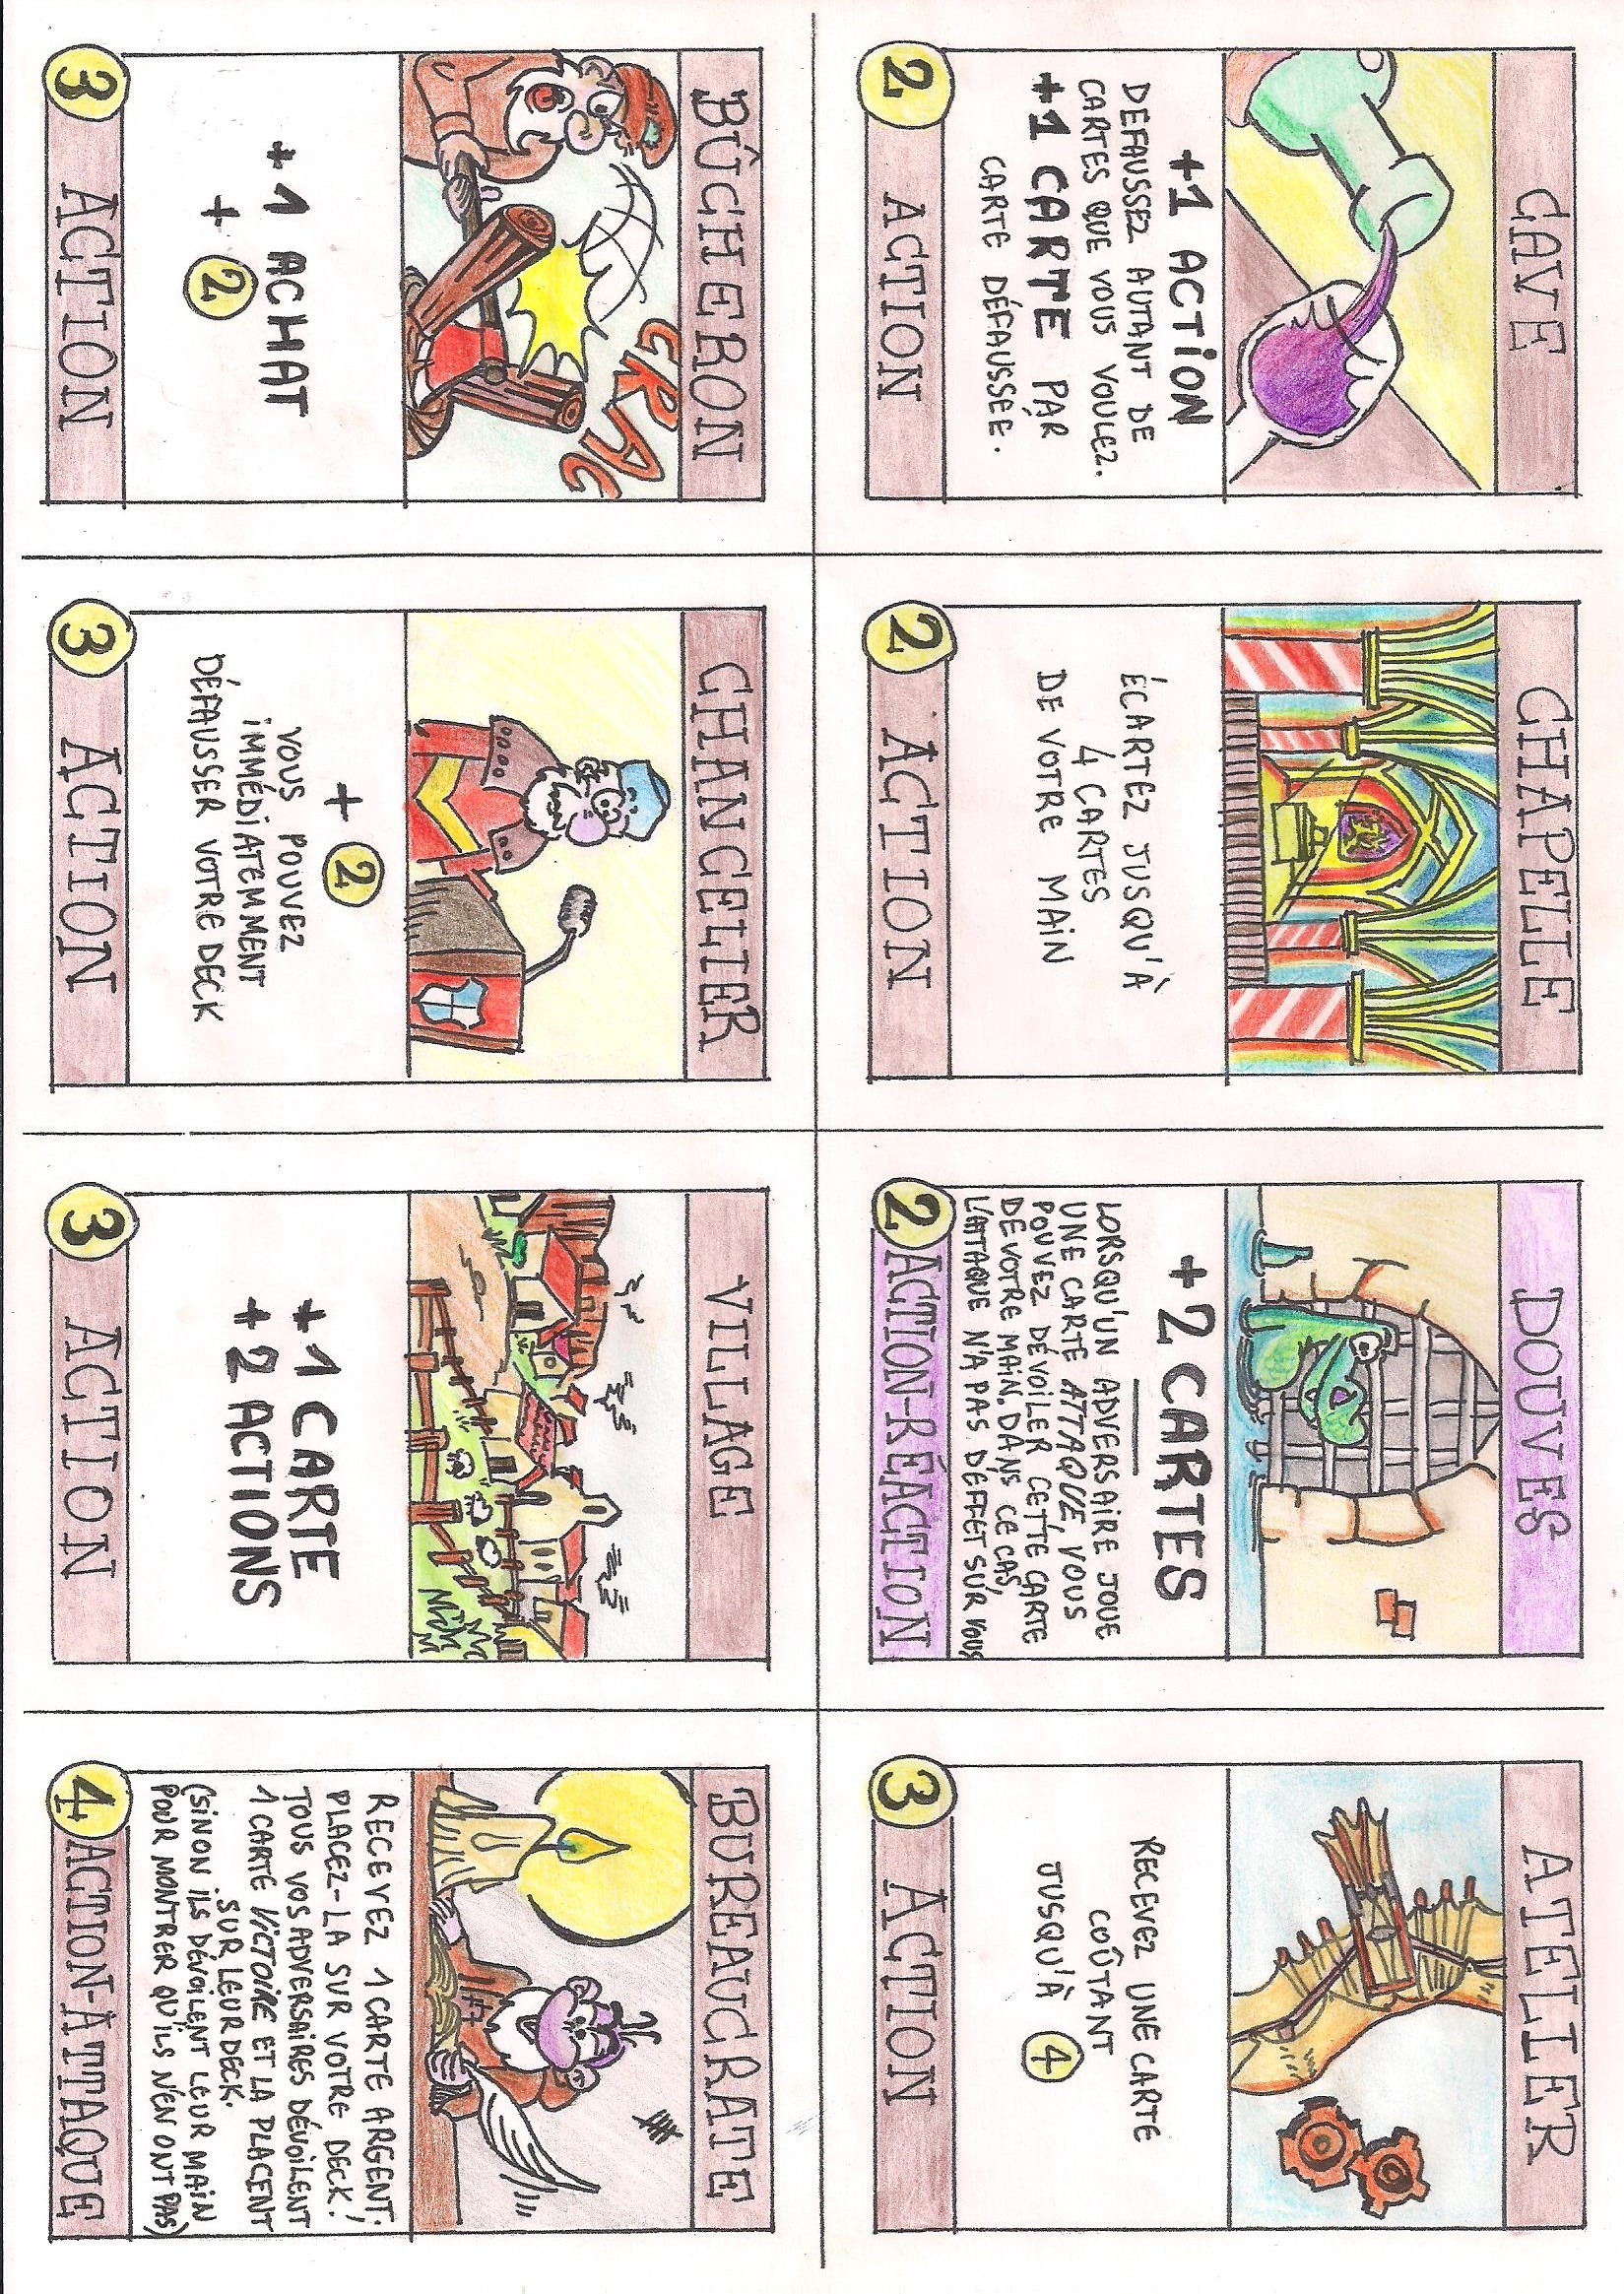 CAVE
+1 ACTION
DEFAUSSEZ AUTANT DE
CARTES QUE VOUS VOULEZ.
+1 CARTE PAR
CARTE DÉFAUSSÉE.
2 ACTION
CHAPELLE
ÉCARTEZ JUSQU'À
4 CARTES
DE VOTRE MAIN
2 ACTION
DOUVES
+2 CARTES
LORSQU'UN ADVERSAIRE JOUE
UNE CARTE ATTAQUE, VOUS
POUVEZ DÉVOILER CETTE CARTE
DE VOTRE MAIN. DANS CE CAS,
L'ATTAQUE N'A PAS D'EFFET SUR VOUS
2 ACTION-RÉACTION
ATELIER
RECEVEZ UNE CARTE
COÛTANT
JUSQU'À 4
3 ACTION
BÛCHERON
CRAC
+1 ACHAT
+ 2
3 ACTION
CHANCELIER
+ 2
VOUS POUVEZ
IMMÉDIATEMMENT
DÉFAUSSER VOTRE DECK
3 ACTION
VILLAGE
+1 CARTE
+2 ACTIONS
3 ACTION
BUREAUCRATE
RECEVEZ 1 CARTE ARGENT;
PLACEZ-LA SUR VOTRE DECK!
TOUS VOS ADVERSAIRES DÉVOILENT
1 CARTE VICTOIRE ET LA PLACENT
SUR LEUR DECK.
(SINON ILS DÉVOILENT LEUR MAIN
POUR MONTRER QU'ILS N'EN ONT PAS)
4 ACTION-ATTAQUE